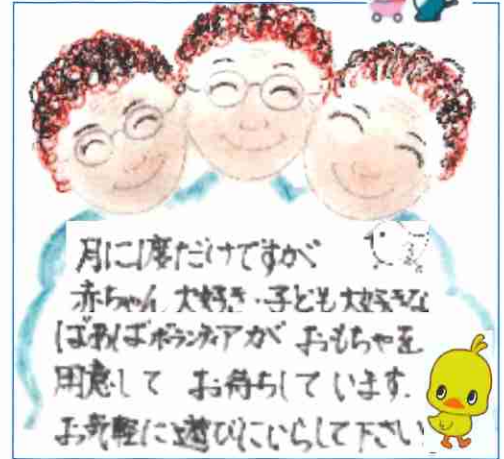 月に1度だけですが
赤ちゃん大好き・子ども大好きな
ばぁばボランティアが おもちゃを
用意して お待ちして います.
お気軽に遊びにいらして下さい